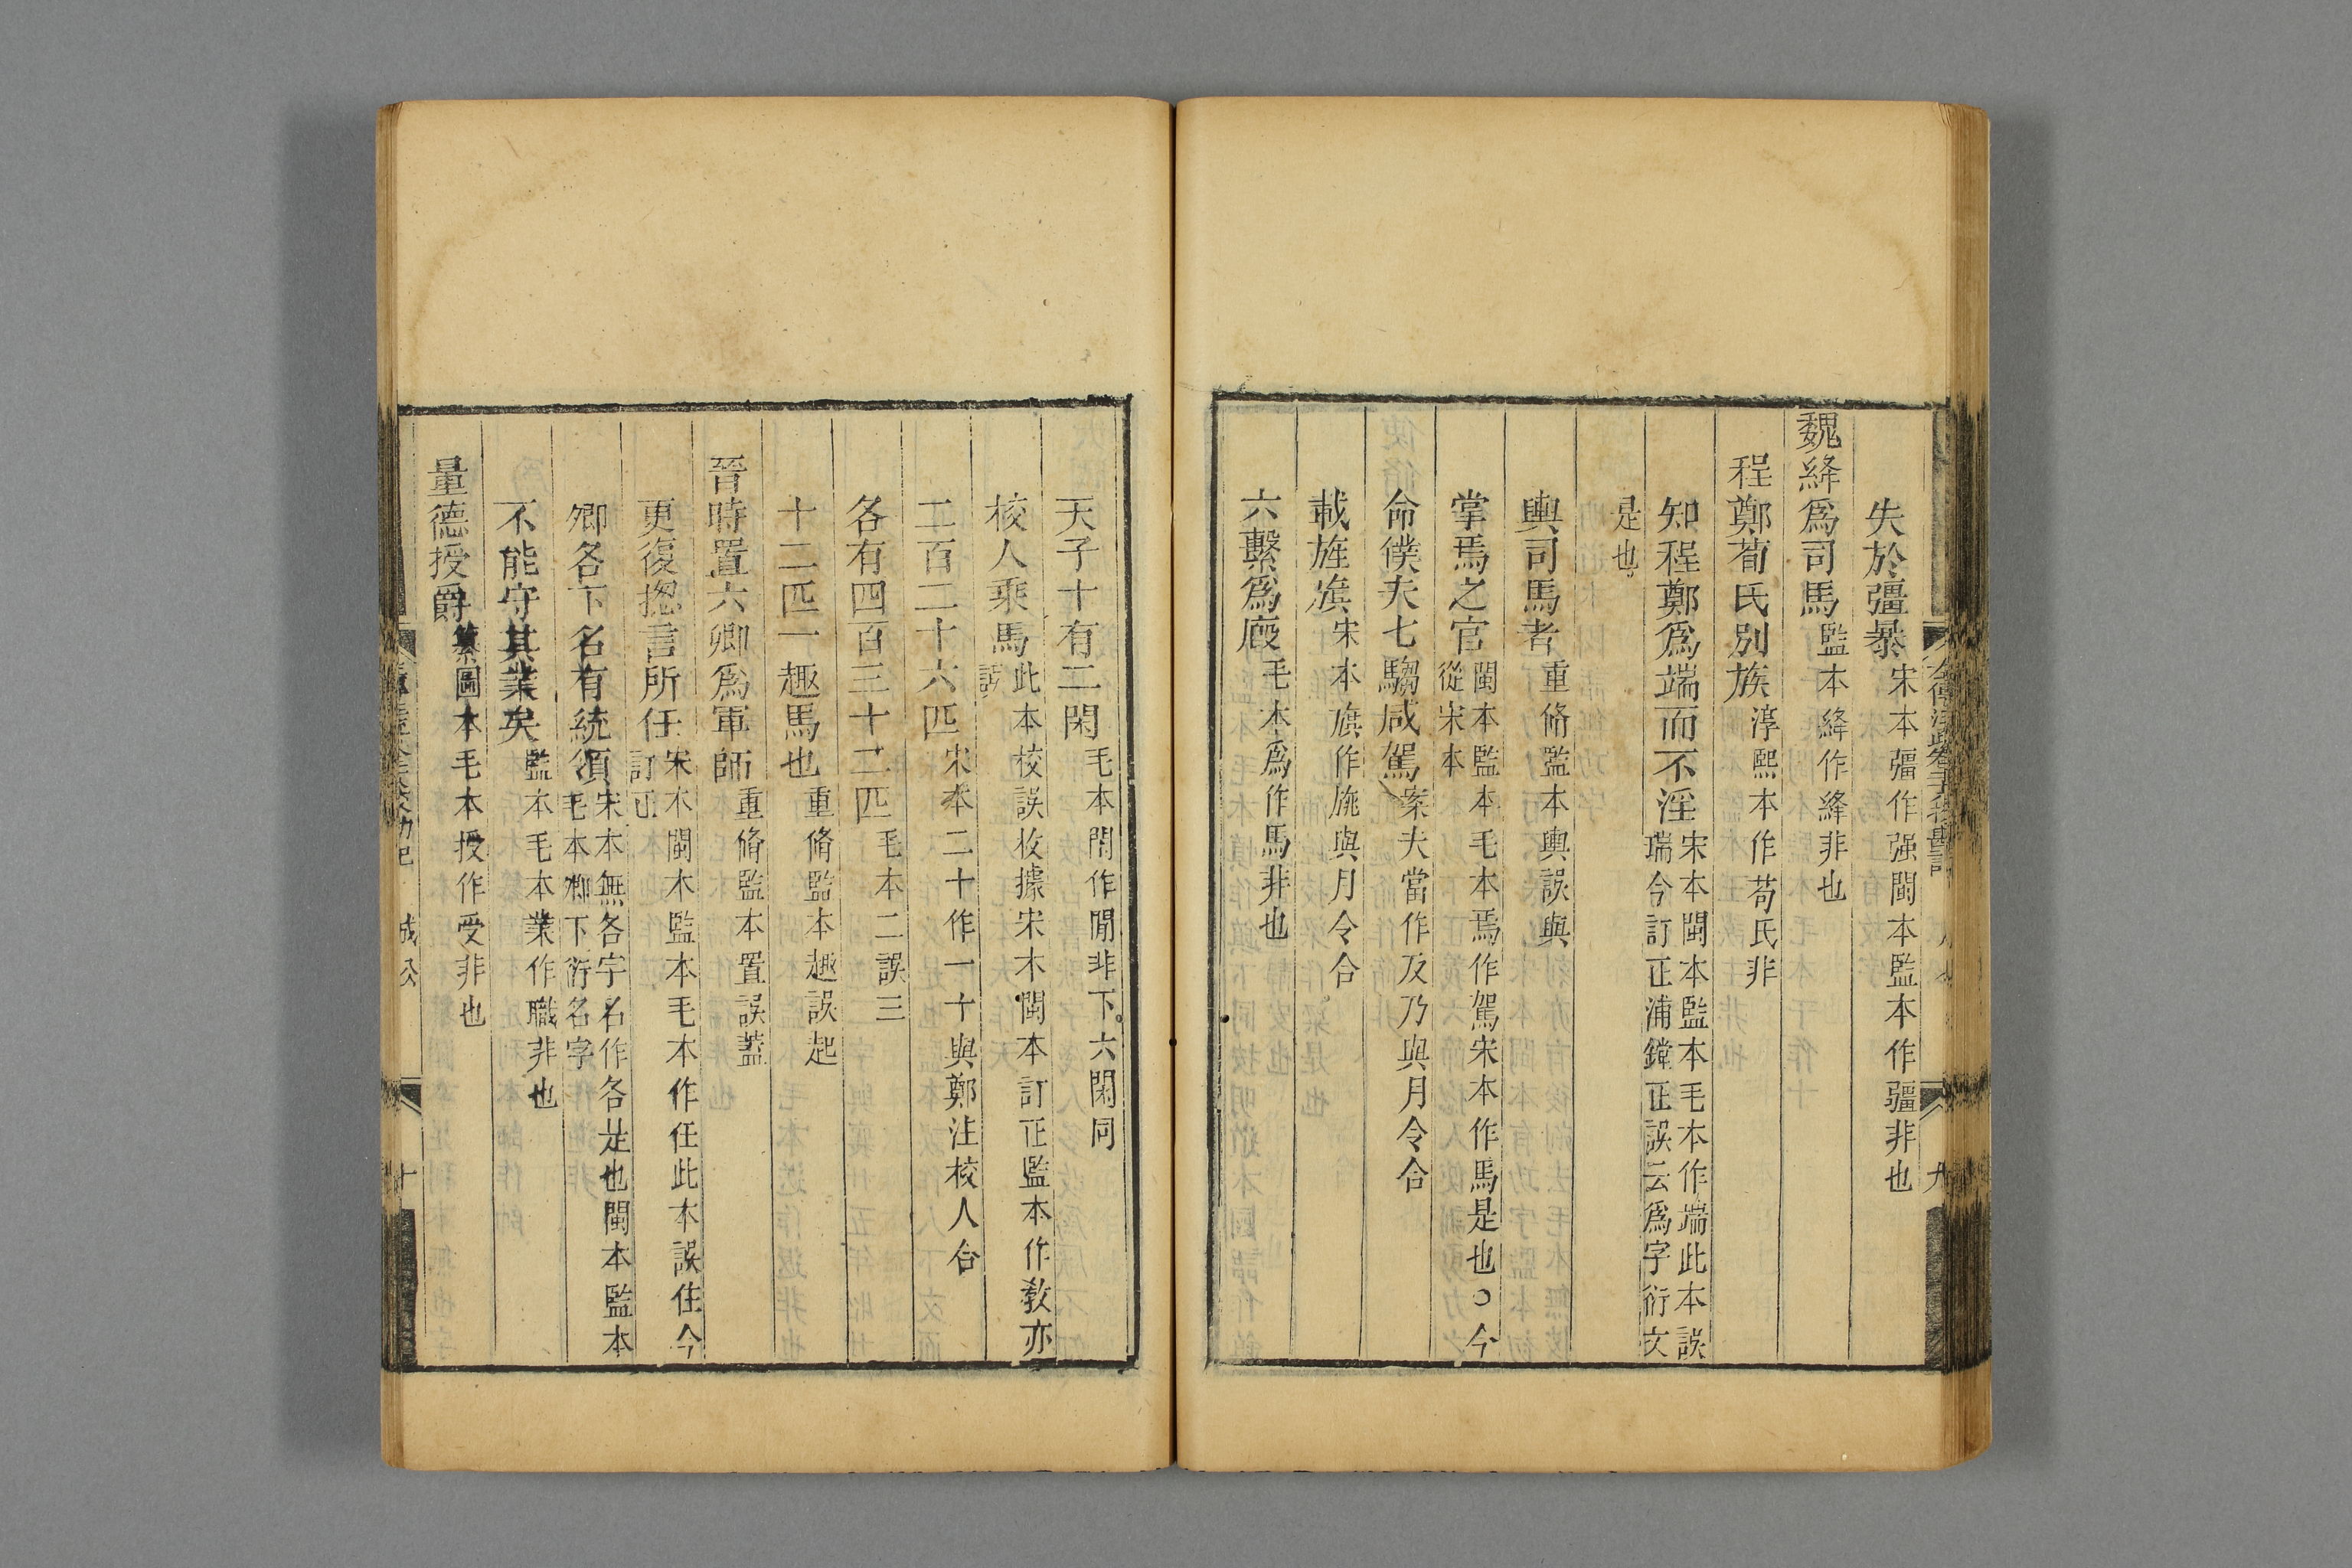 失於彊暴宋本彊作强閩本監本作疆非也
魏絳爲司馬監本絳作絳非也
程鄭荀氏別族淳熙本作苟氏非
知程鄭爲端而不淫宋本閩本監本毛本作端此本誤
瑞今訂正浦鏜正誤云爲字衍文
是也
輿司馬者重脩監本輿誤與
掌馬之官閩本監本毛本焉作駕宋本作馬是也○今
從宋本
命僕夫七騶咸駕案夫當作及乃與月令合
載旌旗宋本旗作旐與月令合
六繫爲廄毛本爲作馬非也
天子十有二閑毛本閑作閒非下六閑同
校人乘馬此本校誤枚據宋本閩本訂正監本作教亦
誤
二百二十六匹宋本二十作一十與鄭注校人合
各有四百三十二匹毛本二誤三
十二匹一趣馬也重脩監本趣誤起
晉時置六卿爲軍師重脩監本置誤蓋
更復揔言所任宋本閩本監本毛本作任此本誤住今
訂正
卿各下名有統領宋本無各字名作各是也閩本監本
毛本卿下衍名字
不能守其業矣監本毛本業作職非也
量德授爵纂圖本毛本授作受非也
成公
十
九